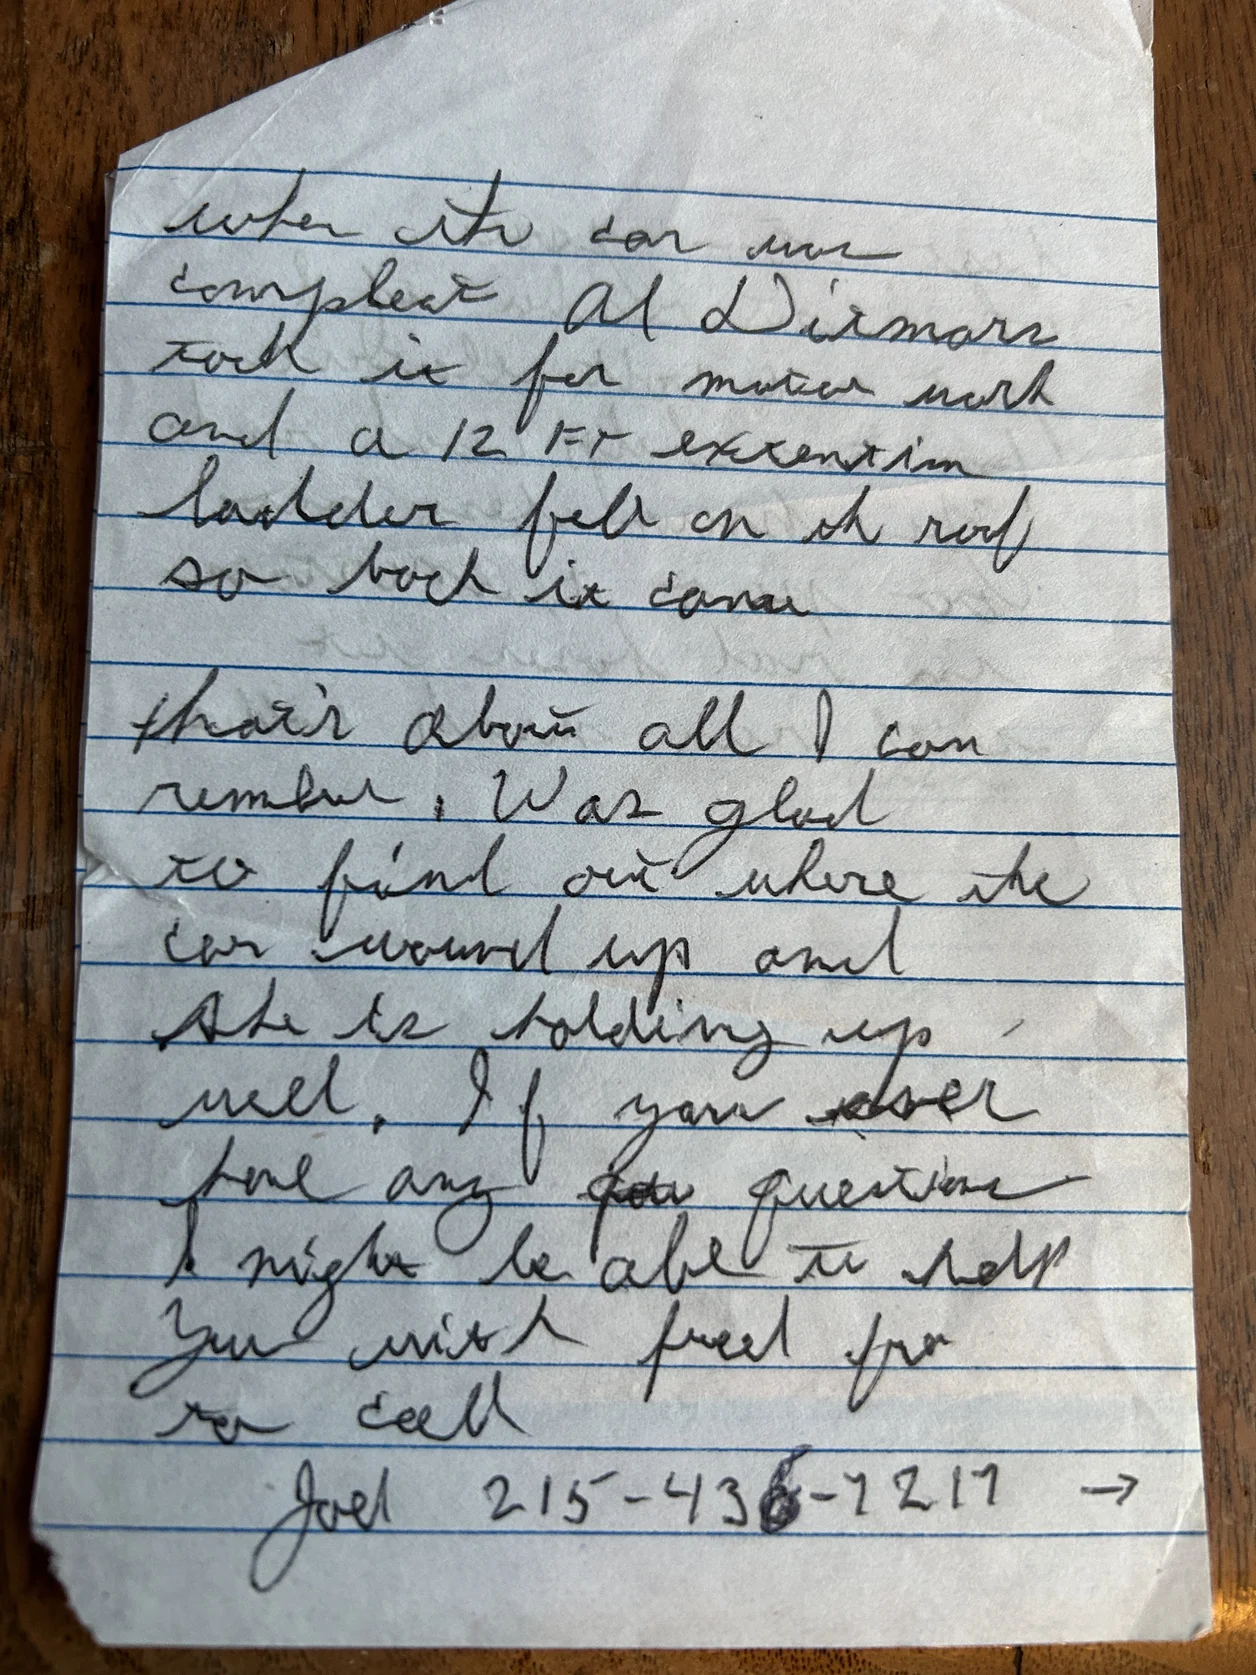 when the car was
compleat Al Ditmars
took it for motor work
and a 12 FT extention
ladder fell on th roof
so back it came
that's about all I can
rember. Was glad
to find out where the
car wound up and
she is holding up
well. If you ever
have any questions
I might be able to help
you with freel fre
to call
Joel 215-436-7217 →